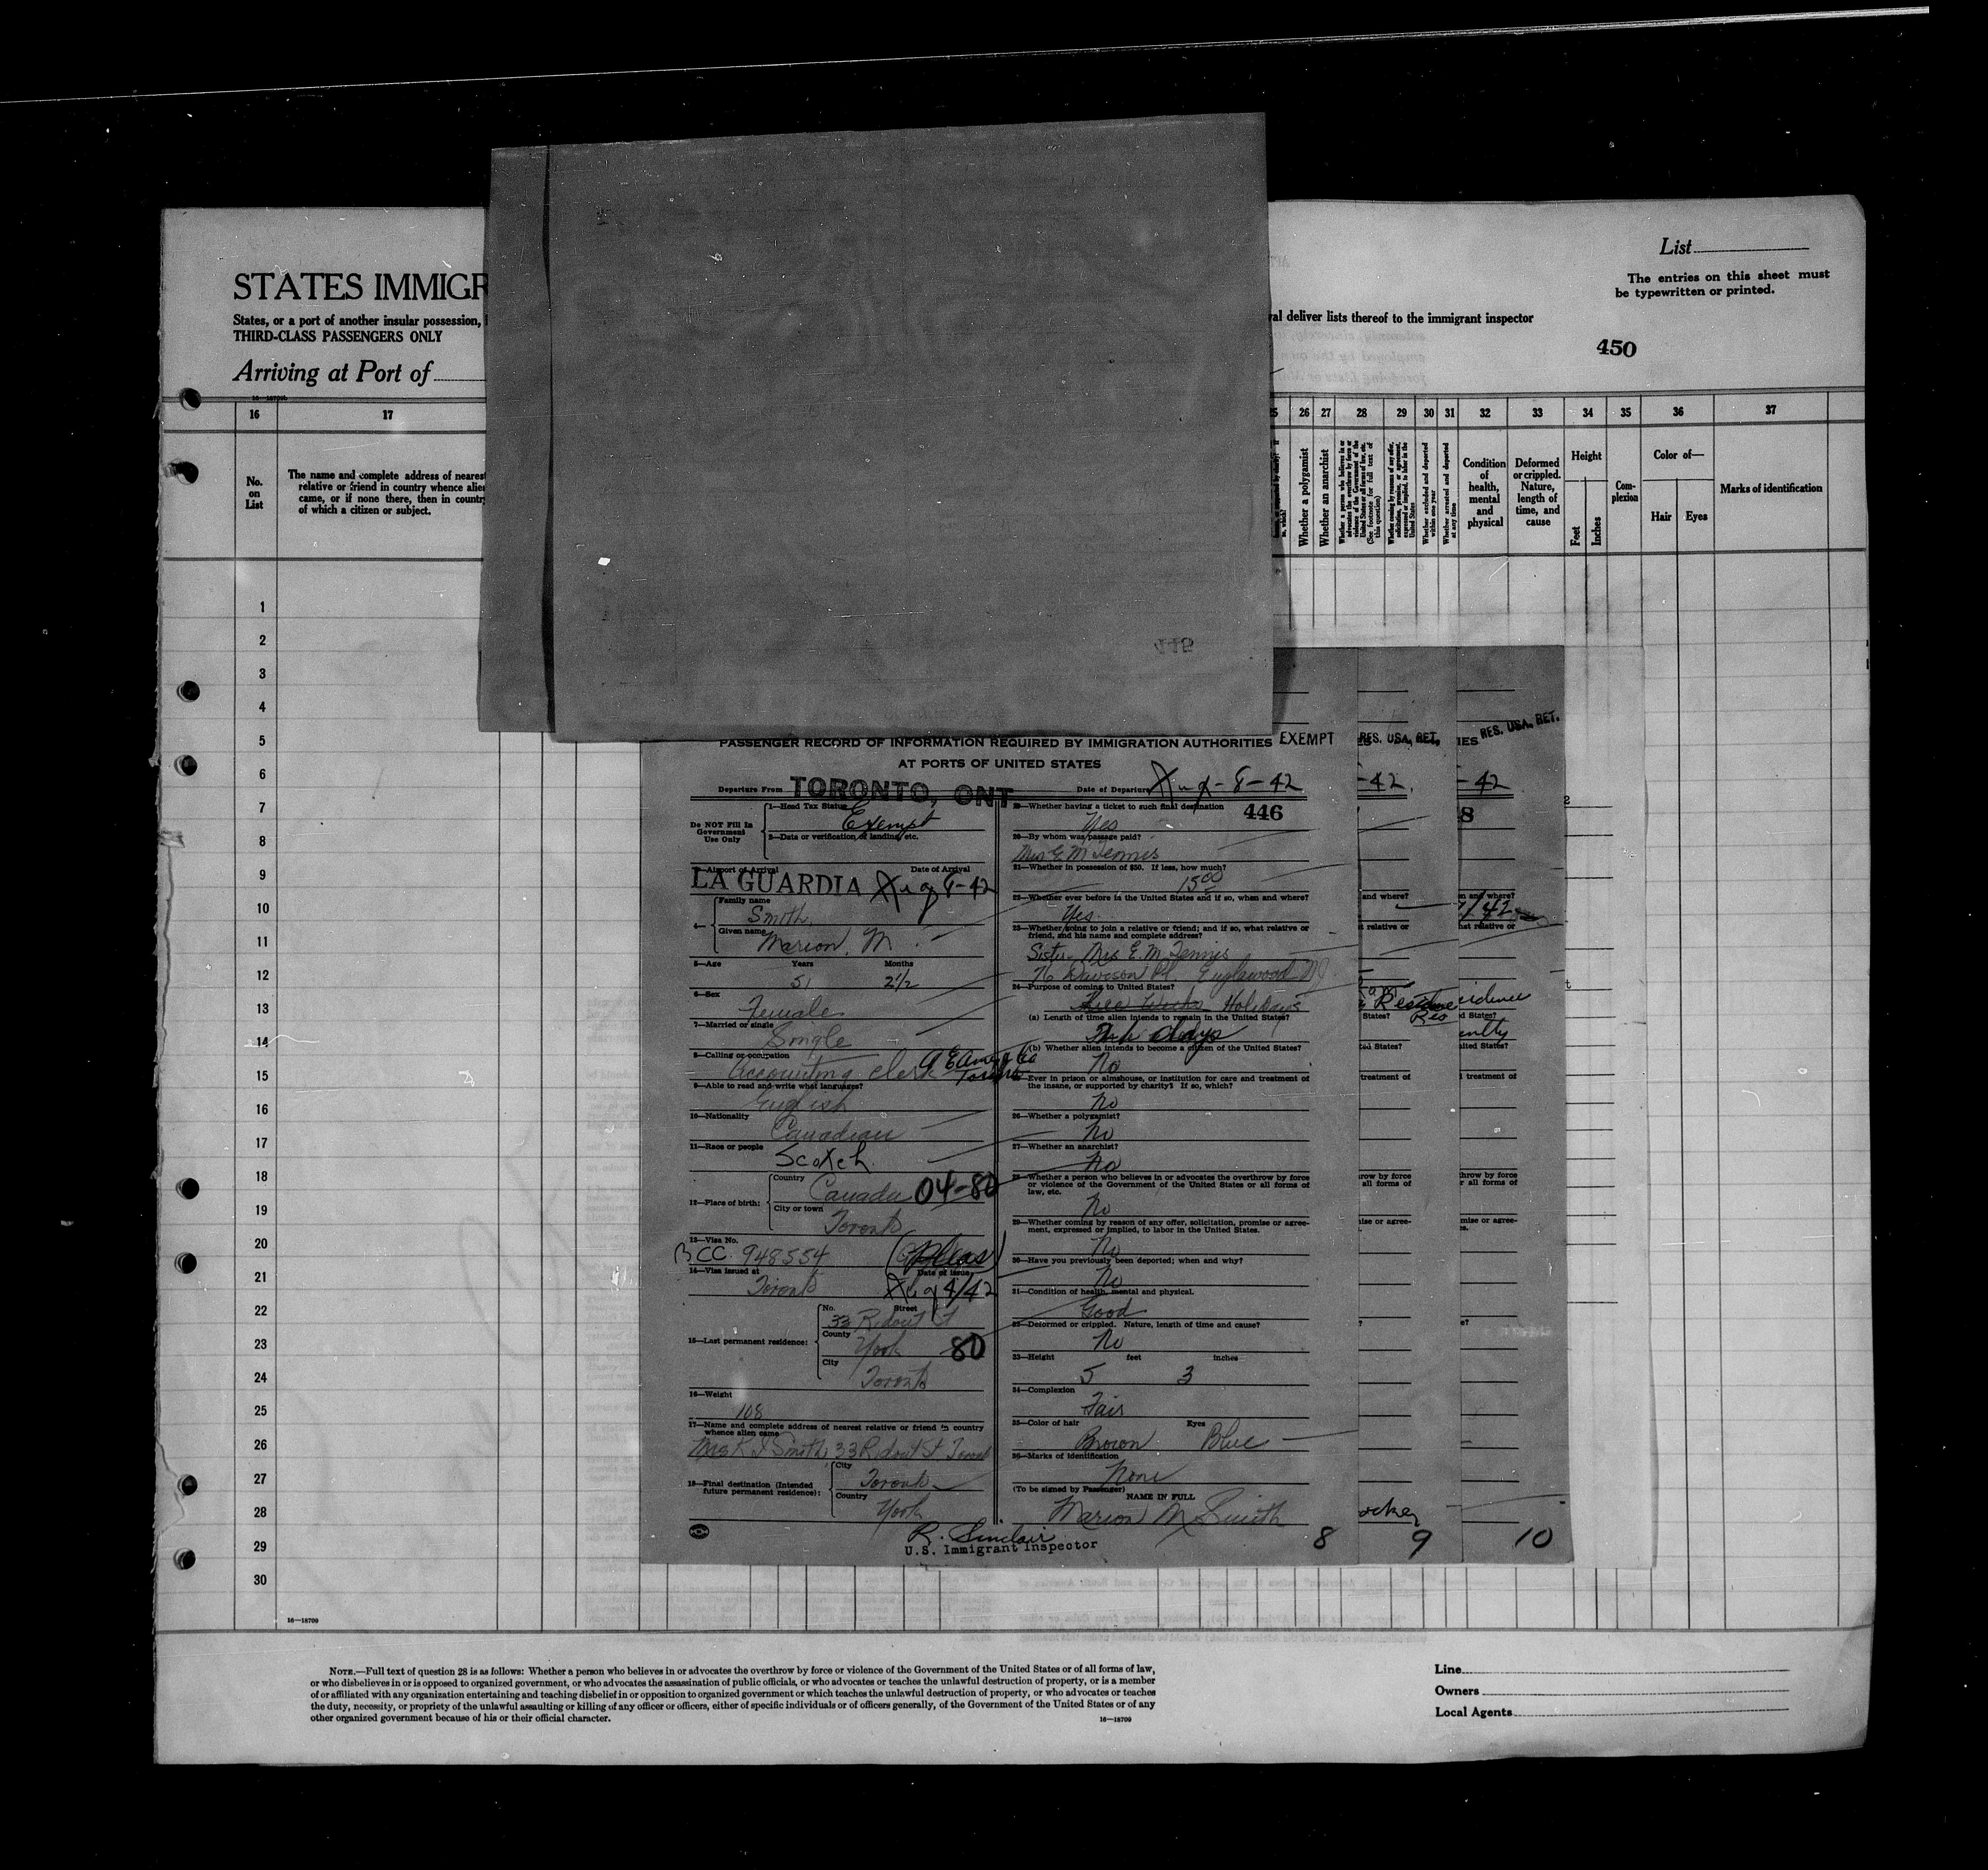 List
The entries on this sheet must
be typewritten or printed.
STATES IMMIGR
States, or a port of another insular possession,
THIRD-CLASS PASSENGERS ONLY
al deliver lists thereof to the immigrant inspector
Arriving at Port of
450
16 17 26 27 28 29 30 31 32 33 34 35 36 37
No.
on
List
The name and complete address of nearest
relative or friend in country whence alien
came, or if none there, then in country
of which a citizen or subject.
Whether a polygamist
Whether an anarchist
Whether excluded and deported
within one year
Whether arrested and deported
at any time
Condition
of
health,
mental
and
physical
Deformed
or crippled.
Nature,
length of
time, and
cause
Height
Feet
Inches
Com-
plexion
Color of—
Hair Eyes
Marks of identification
1
2
3
4
5
6
7
8
9
10
11
12
13
14
15
16
17
18
19
20
21
22
23
24
25
26
27
28
29
30
16—18709
PASSENGER RECORD OF INFORMATION REQUIRED BY IMMIGRATION AUTHORITIES EXEMPT
AT PORTS OF UNITED STATES
Departure From TORONTO, ONT
Date of Departure Aug-8-42
Do NOT Fill In
Government
Use Only
1—Head Tax Status
Exempt
2—Data or verification of landing, etc.
3—Airport of Arrival Date of Arrival
LA GUARDIA Aug 8-42
4—
Family name
Smith
Given name
Marion. M.
5—Age Years Months
51 2 1/2
6—Sex
Female
7—Married or single
Single
8—Calling or occupation
Accounting clerk
9—Able to read and write what languages?
English
10—Nationality
Canadian
11—Race or people
Scotch
12—Place of birth:
Country
Canada 04-80
City or town
Toronto
13—Visa No.
BCC. 948554
14—Visa issued at Date of issue
Toronto Aug 4/42
15—Last permanent residence:
No. Street
33 Rdout St
County
York 80
City
Toronto
16—Weight
108
17—Name and complete address of nearest relative or friend in country
whence alien came
33 Rdout St
18—Final destination (Intended
future permanent residence):
City
Toronto
Country
York
R. Sinclair
U.S. Immigrant Inspector
19—Whether having a ticket to such final destination
446
Yes
20—By whom was passage paid?
Mrs E M Tennis
21—Whether in possession of $50. If less, how much?
15 00
22—Whether ever before in the United States and if so, when and where?
Yes
23—Whether going to join a relative or friend; and if so, what relative or
friend, and his name and complete address?
Sister Mrs E. M. Tennis
76 Davison Pl. Englewood NJ
24—Purpose of coming to United States?
Holidays
(a) Length of time alien intends to remain in the United States?
days
(b) Whether alien intends to become a citizen of the United States?
No
25—Ever in prison or almshouse, or institution for care and treatment of
the insane, or supported by charity? If so, which?
No
26—Whether a polygamist?
No
27—Whether an anarchist?
No
28—Whether a person who believes in or advocates the overthrow by force
or violence of the Government of the United States or all forms of
law, etc.
No
29—Whether coming by reason of any offer, solicitation, promise or agree-
ment, expressed or implied, to labor in the United States.
No
30—Have you previously been deported; when and why?
No
31—Condition of health, mental and physical.
Good
32—Deformed or crippled. Nature, length of time and cause?
No
33—Height feet inches
5 3
34—Complexion
Fair
35—Color of hair Eyes
Brown Blue
36—Marks of identification
None
(To be signed by Passenger)
NAME IN FULL
Marion M Smith
8
RES. USA, RET.
-42.
9
RES. USA, RET.
-42
10
NOTE.—Full text of question 28 is as follows: Whether a person who believes in or advocates the overthrow by force or violence of the Government of the United States or of all forms of law,
or who disbelieves in or is opposed to organized government, or who advocates the assassination of public officials, or who advocates or teaches the unlawful destruction of property, or is a member
of or affiliated with any organization entertaining and teaching disbelief in or opposition to organized government or which teaches the unlawful destruction of property, or who advocates or teaches
the duty, necessity, or propriety of the unlawful assaulting or killing of any officer or officers, either of specific individuals or of officers generally, of the Government of the United States or of any
other organized government because of his or their official character.
16—18709
Line
Owners
Local Agents